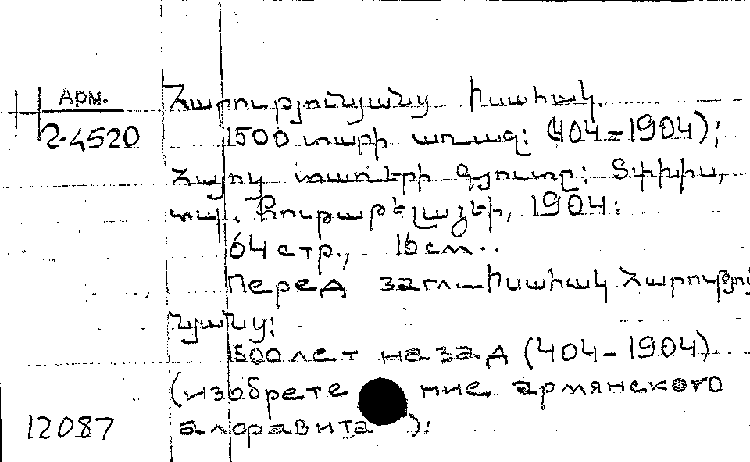 Арм.
2-4520
Հարությունյանց Իսահակ.
1500 տարի առաջ: (404-1904);
Հայոց տառերի գյուտը: Տփխիս,
տպ. Քութաթելաձեի, 1904:
64 стр., 16 см..
Перед загл. Իսահակ Հարություն
նյանց:
1500 лет назад (404-1904)
(изобретение армянского
алфавита):
12087